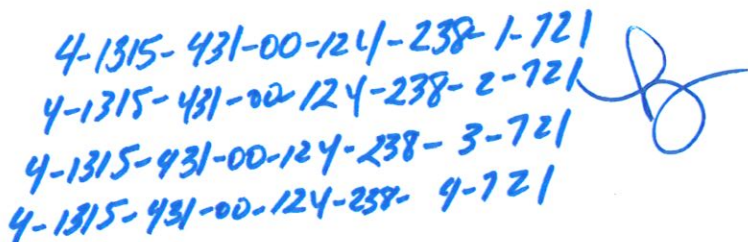 4-1315-431-00-124-238-1-721
4-1315-431-00-124-238-2-721
4-1315-431-00-124-238-3-721
4-1315-431-00-124-238-4-721